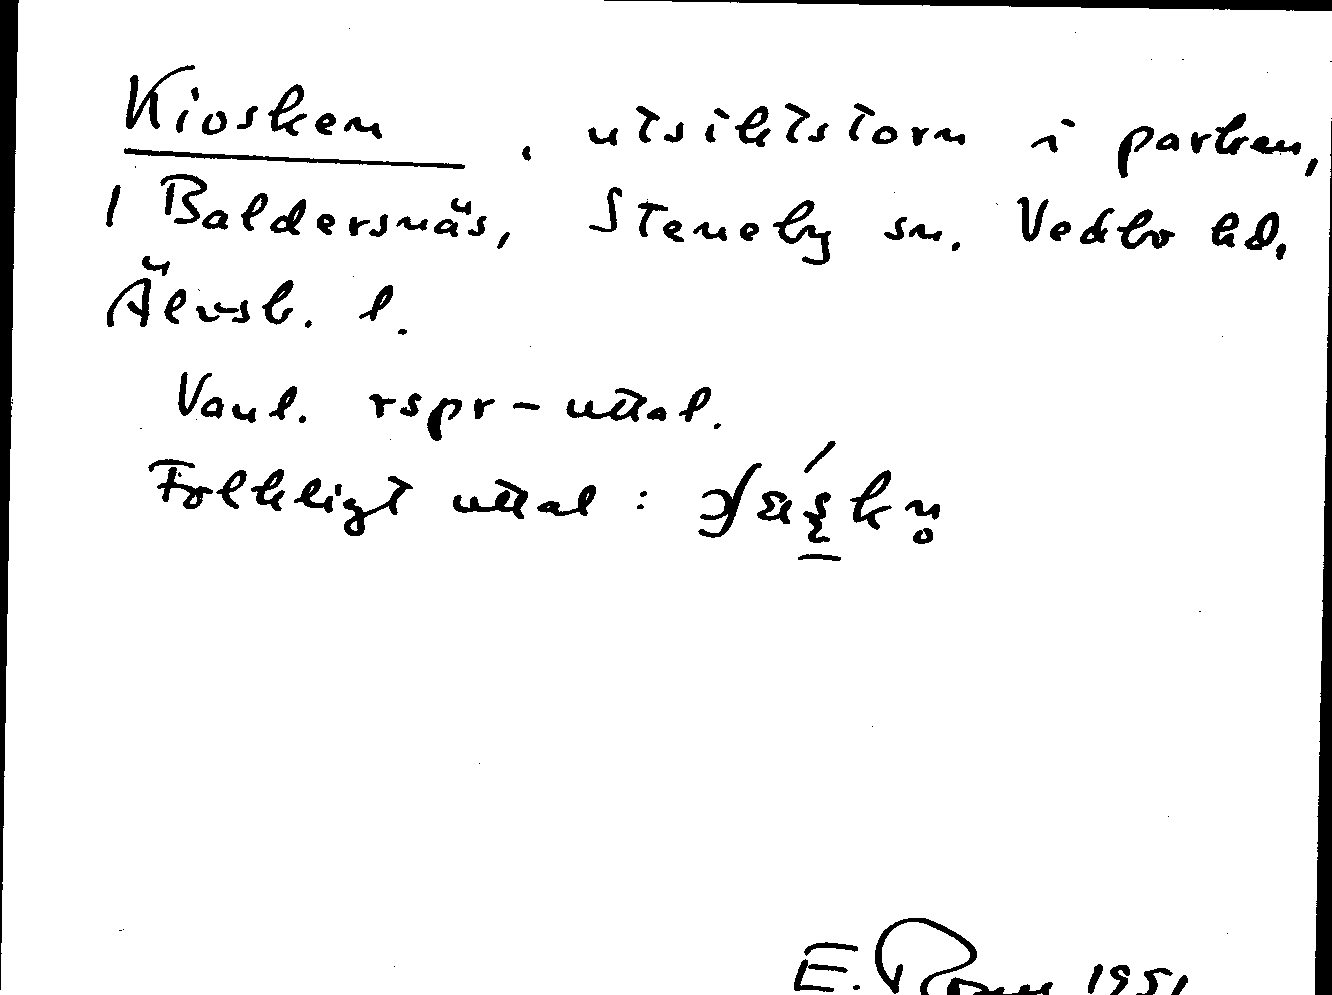 Kiosken, utsiktstorn i parken,
/ Baldersnäs, Steneby sn. Vedbo hd.
Älvsb. l.
Vanl. rspr-uttal.
Folkligt uttal:
E. 1951